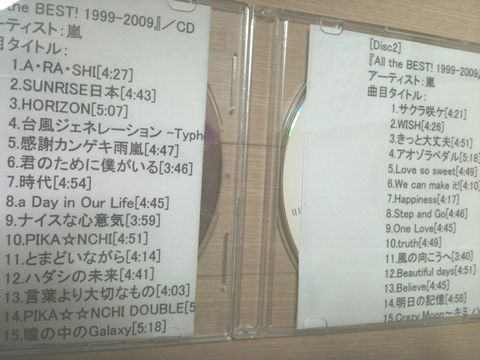 ll the BEST! 1999-2009』/CD
ーティスト:嵐
曲目タイトル:
1.A・RA・SHI[4:27]
2.SUNRISE日本[4:43]
3.HORIZON[5:07]
4.台風ジェネレーション -Typho
5.感謝カンゲキ雨嵐[4:47]
6.君のために僕がいる[3:46]
7.時代[4:54]
8.a Day in Our Life[4:45]
9.ナイスな心意気[3:59]
10.PIKA☆NCHI[4:51]
11.とまどいながら[4:14]
12.ハダシの未来[4:41]
13.言葉より大切なもの[4:03]
14.PIKA☆NCHI DOUBLE[5
15.瞳の中のGalaxy[5:18]
[Disc2]
『All the BEST! 1999-2009』
アーティスト:嵐
曲目タイトル:
1.サクラ咲ケ[4:21]
2.WISH[4:26]
3.きっと大丈夫[4:51]
4.アオゾラペダル[5:18]
5.Love so sweet[4:49]
6.We can make it![4:10]
7.Happiness[4:17]
8.Step and Go[4:46]
9.One Love[4:45]
10.truth[4:49]
11.風の向こうへ[3:40]
12.Beautiful days[4:51]
13.Believe[4:45]
14.明日の記憶[4:58]
15.Crazy Moon~キミ・ハ